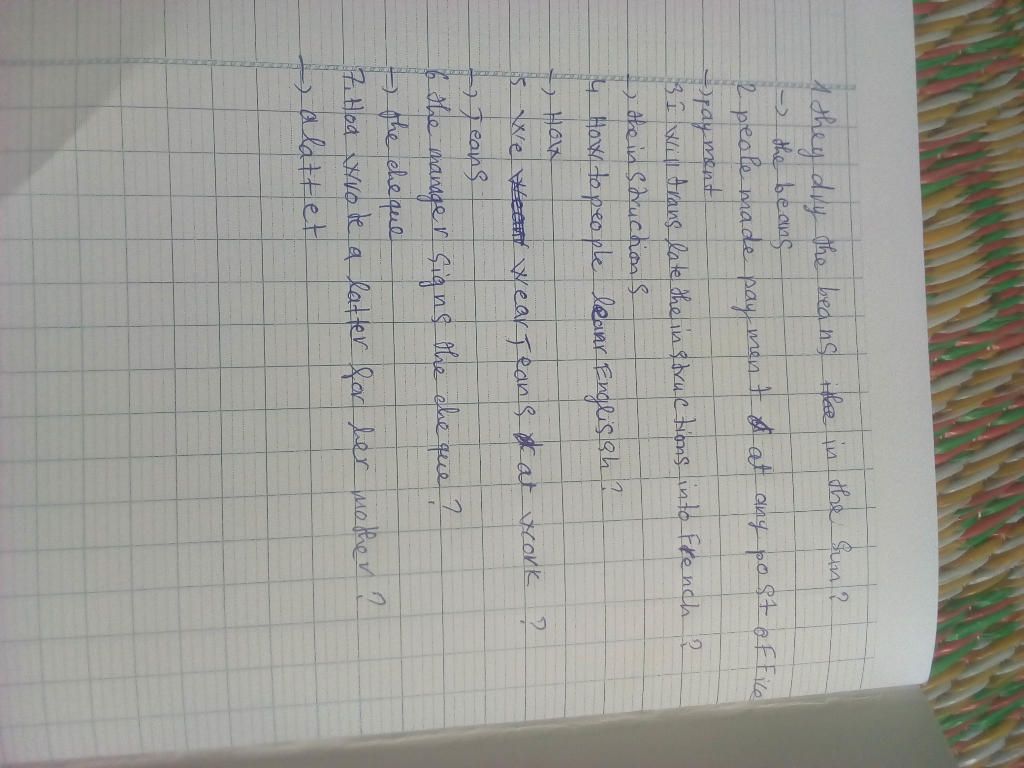 1 they dry the beans the in the sun?
→ the beans
2 peole made payment at any post office
→ payment
3. I will translate the instructions into French ?
→ the instructions
4 How to people leanr English?
→ How
5 we wear Jeans at work ?
→ Jeans
6 the manger signs the cheque ?
→ the cheque
7. Hoa wrote a latter for her mother ?
→ a lattet